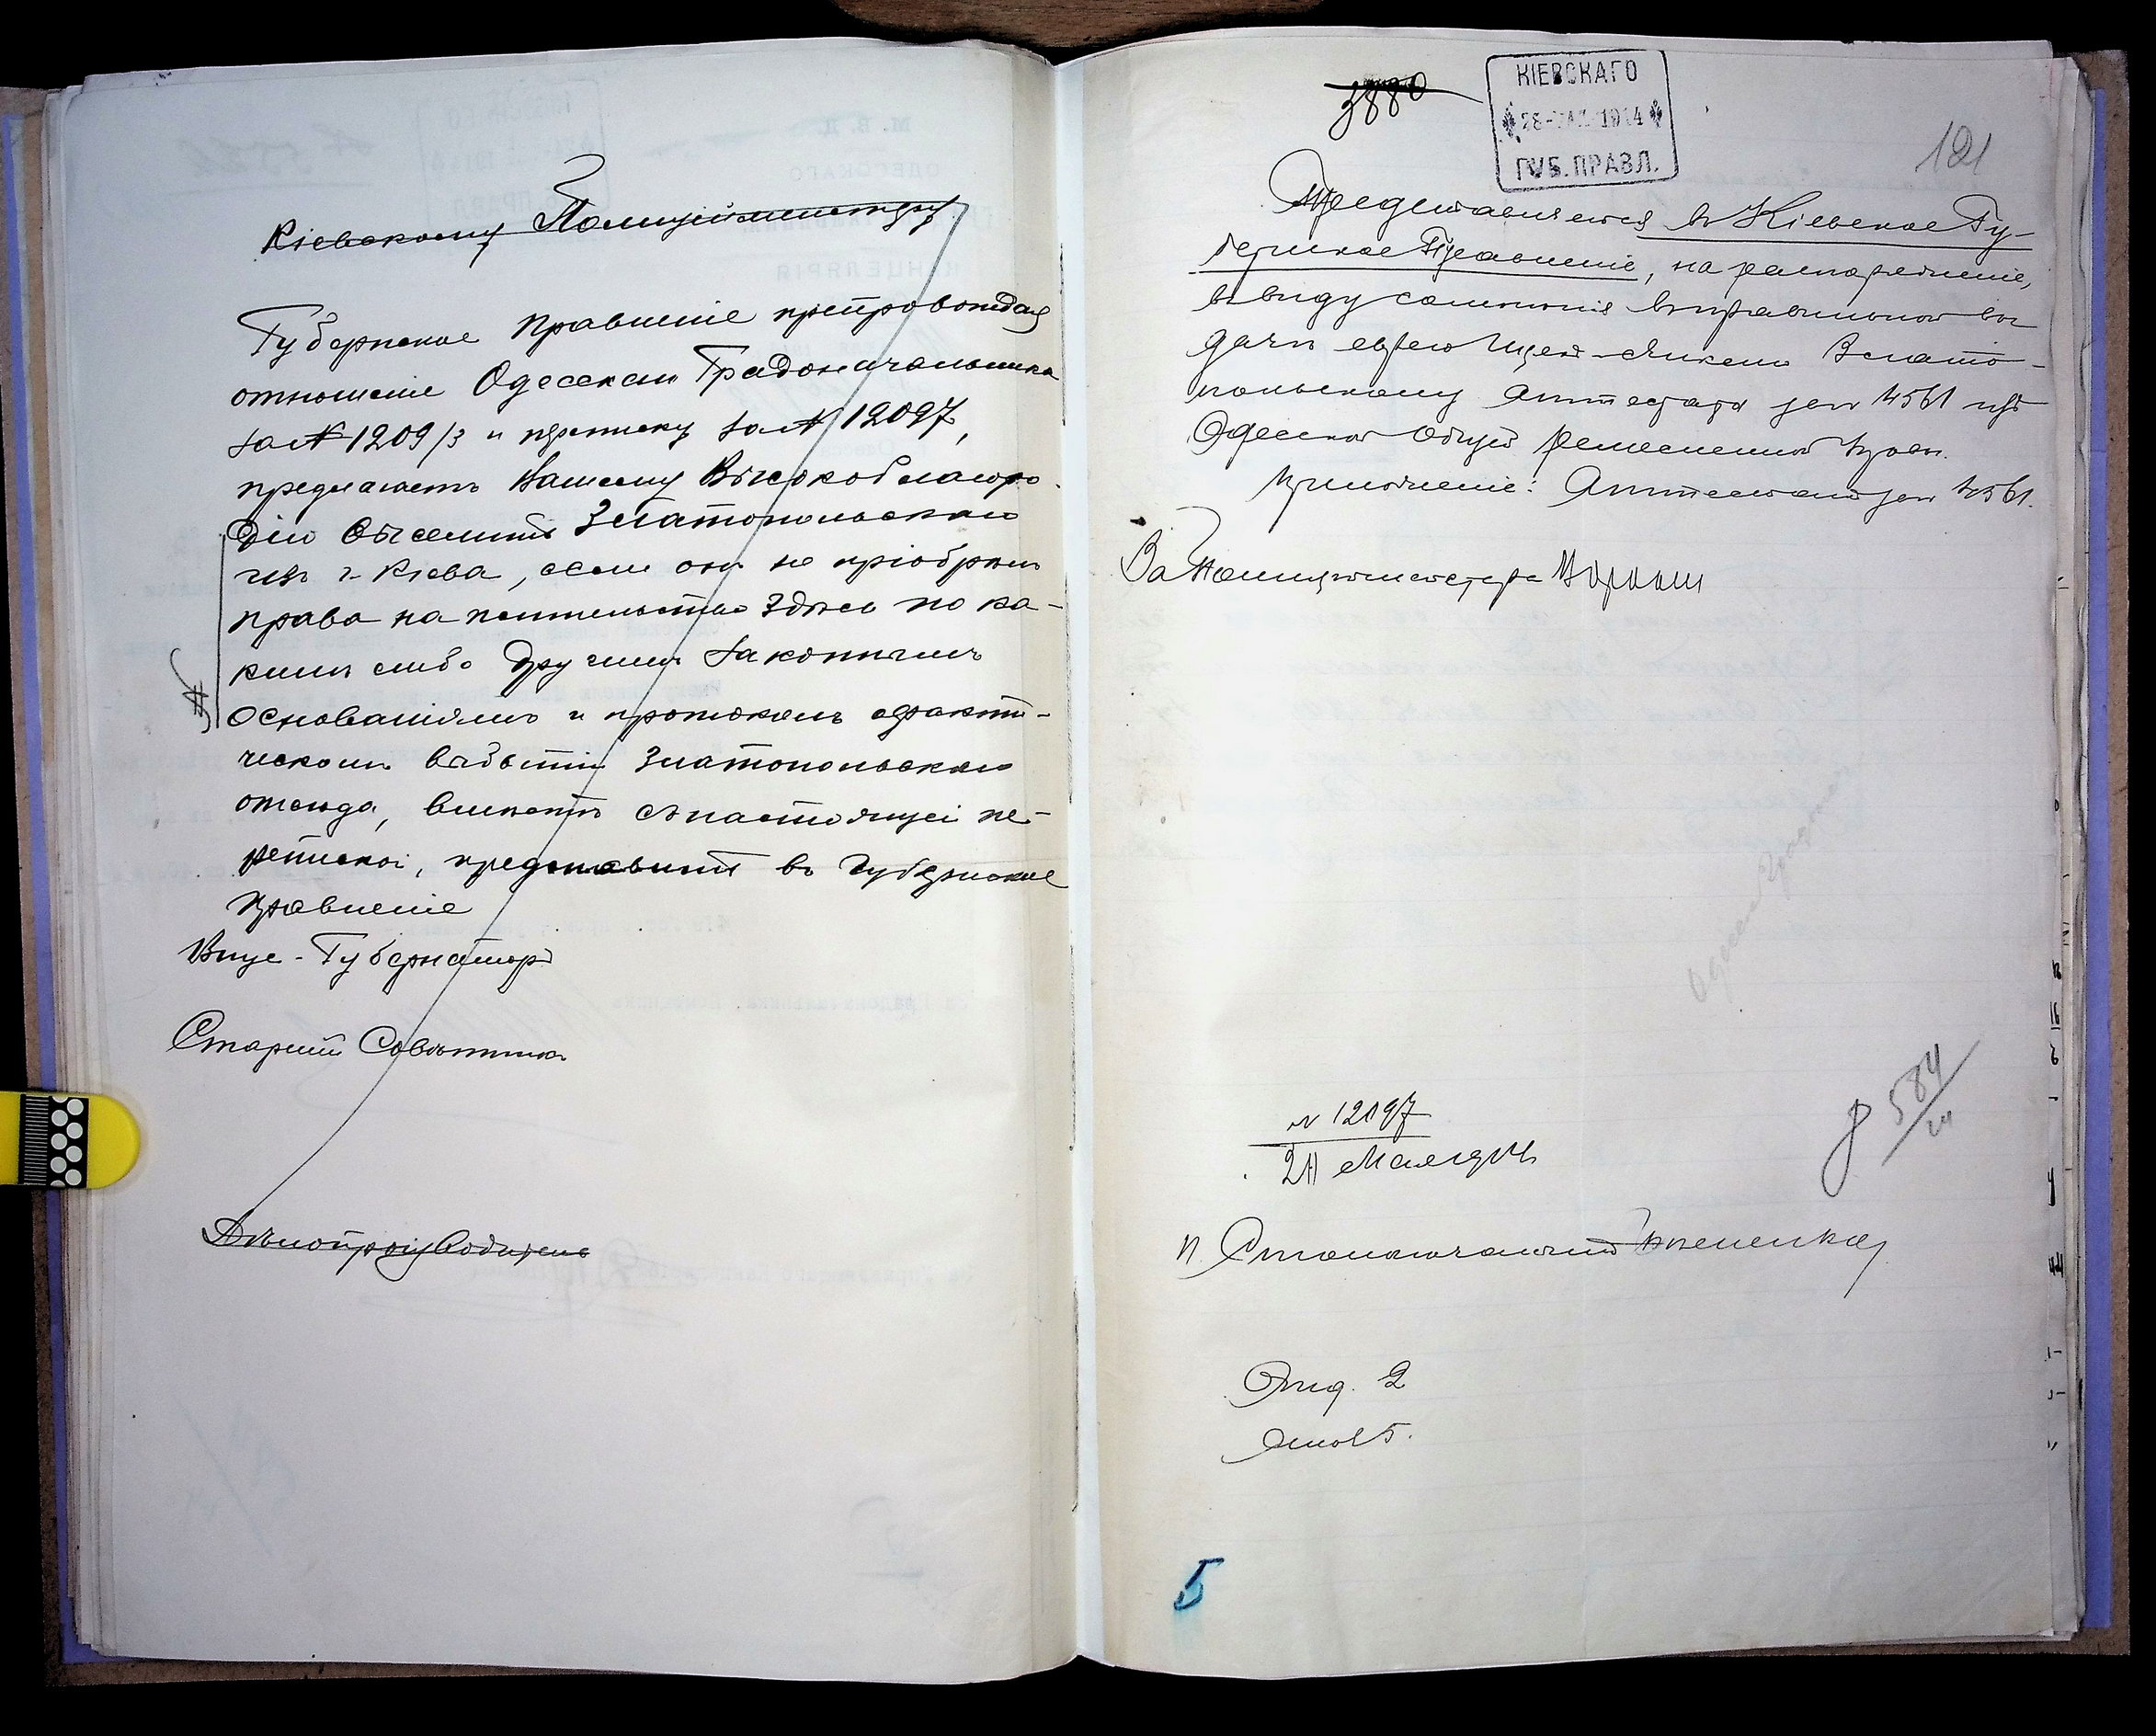 Кіевскому Полицiймейстеру
Губернское Правленіе препровождая
отношеніе Одесскаго Градоначальника
за № 12091/3 и переписку за № 12097,
предлагаетъ Вашему Высокоблагоро-
дію выселить Златопольскаго
изъ г. Кіева, если онъ не пріобрѣлъ
права на жительство здѣсь по ка-
кимъ либо другимъ законнымъ
основаніямъ и протоколъ о факти-
ческомъ выбытіи Златопольскаго
отсюда, вмѣстѣ съ настоящей пе-
репиской, представить въ Губернское
Правленіе
Вице-Губернаторъ
Старшій Совѣтникъ
Дѣлопроизводитель
3880
КІЕВСКАГО
28 МАЯ 1914
ГУБ. ПРАВЛ.
121
Представляется въ Кіевское Гу-
бернское Правленіе, на распоряженіе,
въ виду сомнѣнія въ правильной вы
дачѣ еврею Златo-
польскому аттестата за № 4561 изъ
Одесской Общей ремесленной Управы.
Приложеніе: Аттестатъ за № 4561.
За Полиціймейстера
№ 12097
Мая 1914
п. Столоначальникъ
Отд. 2
Столъ 5.
5